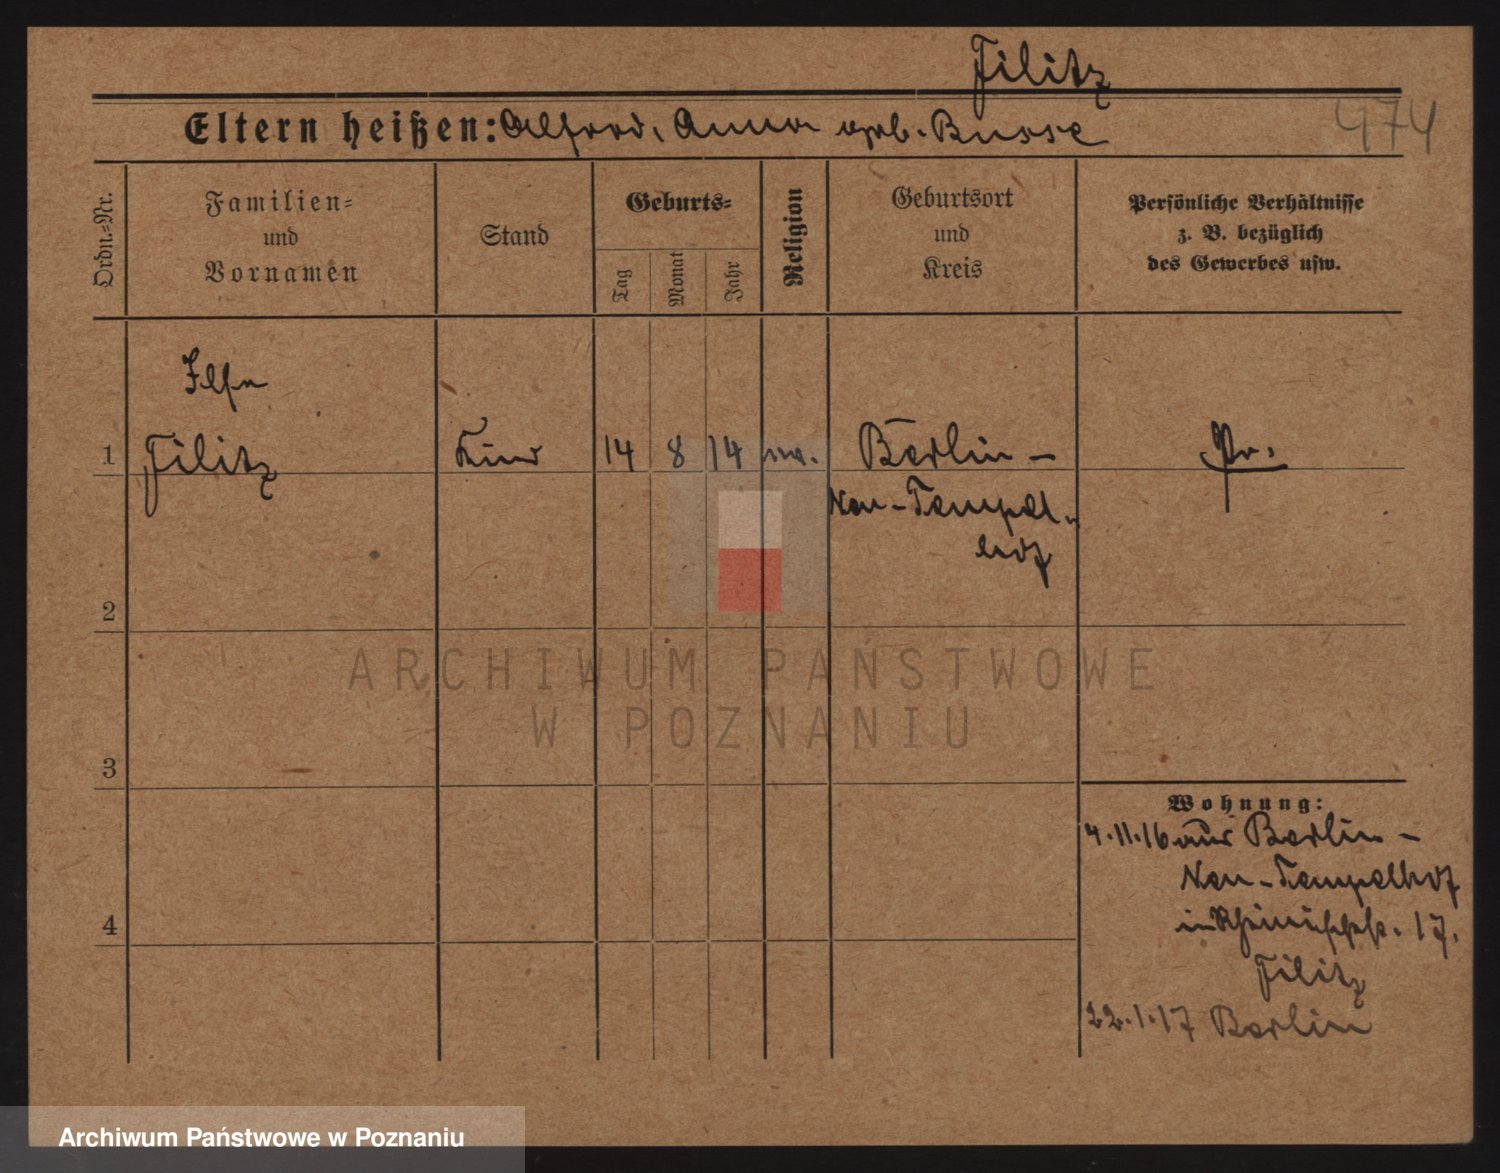 Filitz
Eltern heißen: Alfred, Anna geb. Busse
474
Ordn.=Nr.
Familien=
und
Vornamen
Stand
Geburts=
Tag
Monat
Jahr
Religion
Geburtsort
und
Kreis
Persönliche Verhältnisse
z. B. bezüglich
des Gewerbes usw.
Ilse
1 Filitz Kind 14 8 14 ev. Berlin - Pr.
Neu-Tempel-
hof
2
ARCHIWUM PAŃSTWOWE
W POZNANIU
3
Wohnung:
4.11.16 aus Berlin -
Neu-Tempelhof
in 17.
4
Filitz
22.1.17 Berlin
Archiwum Państwowe w Poznaniu